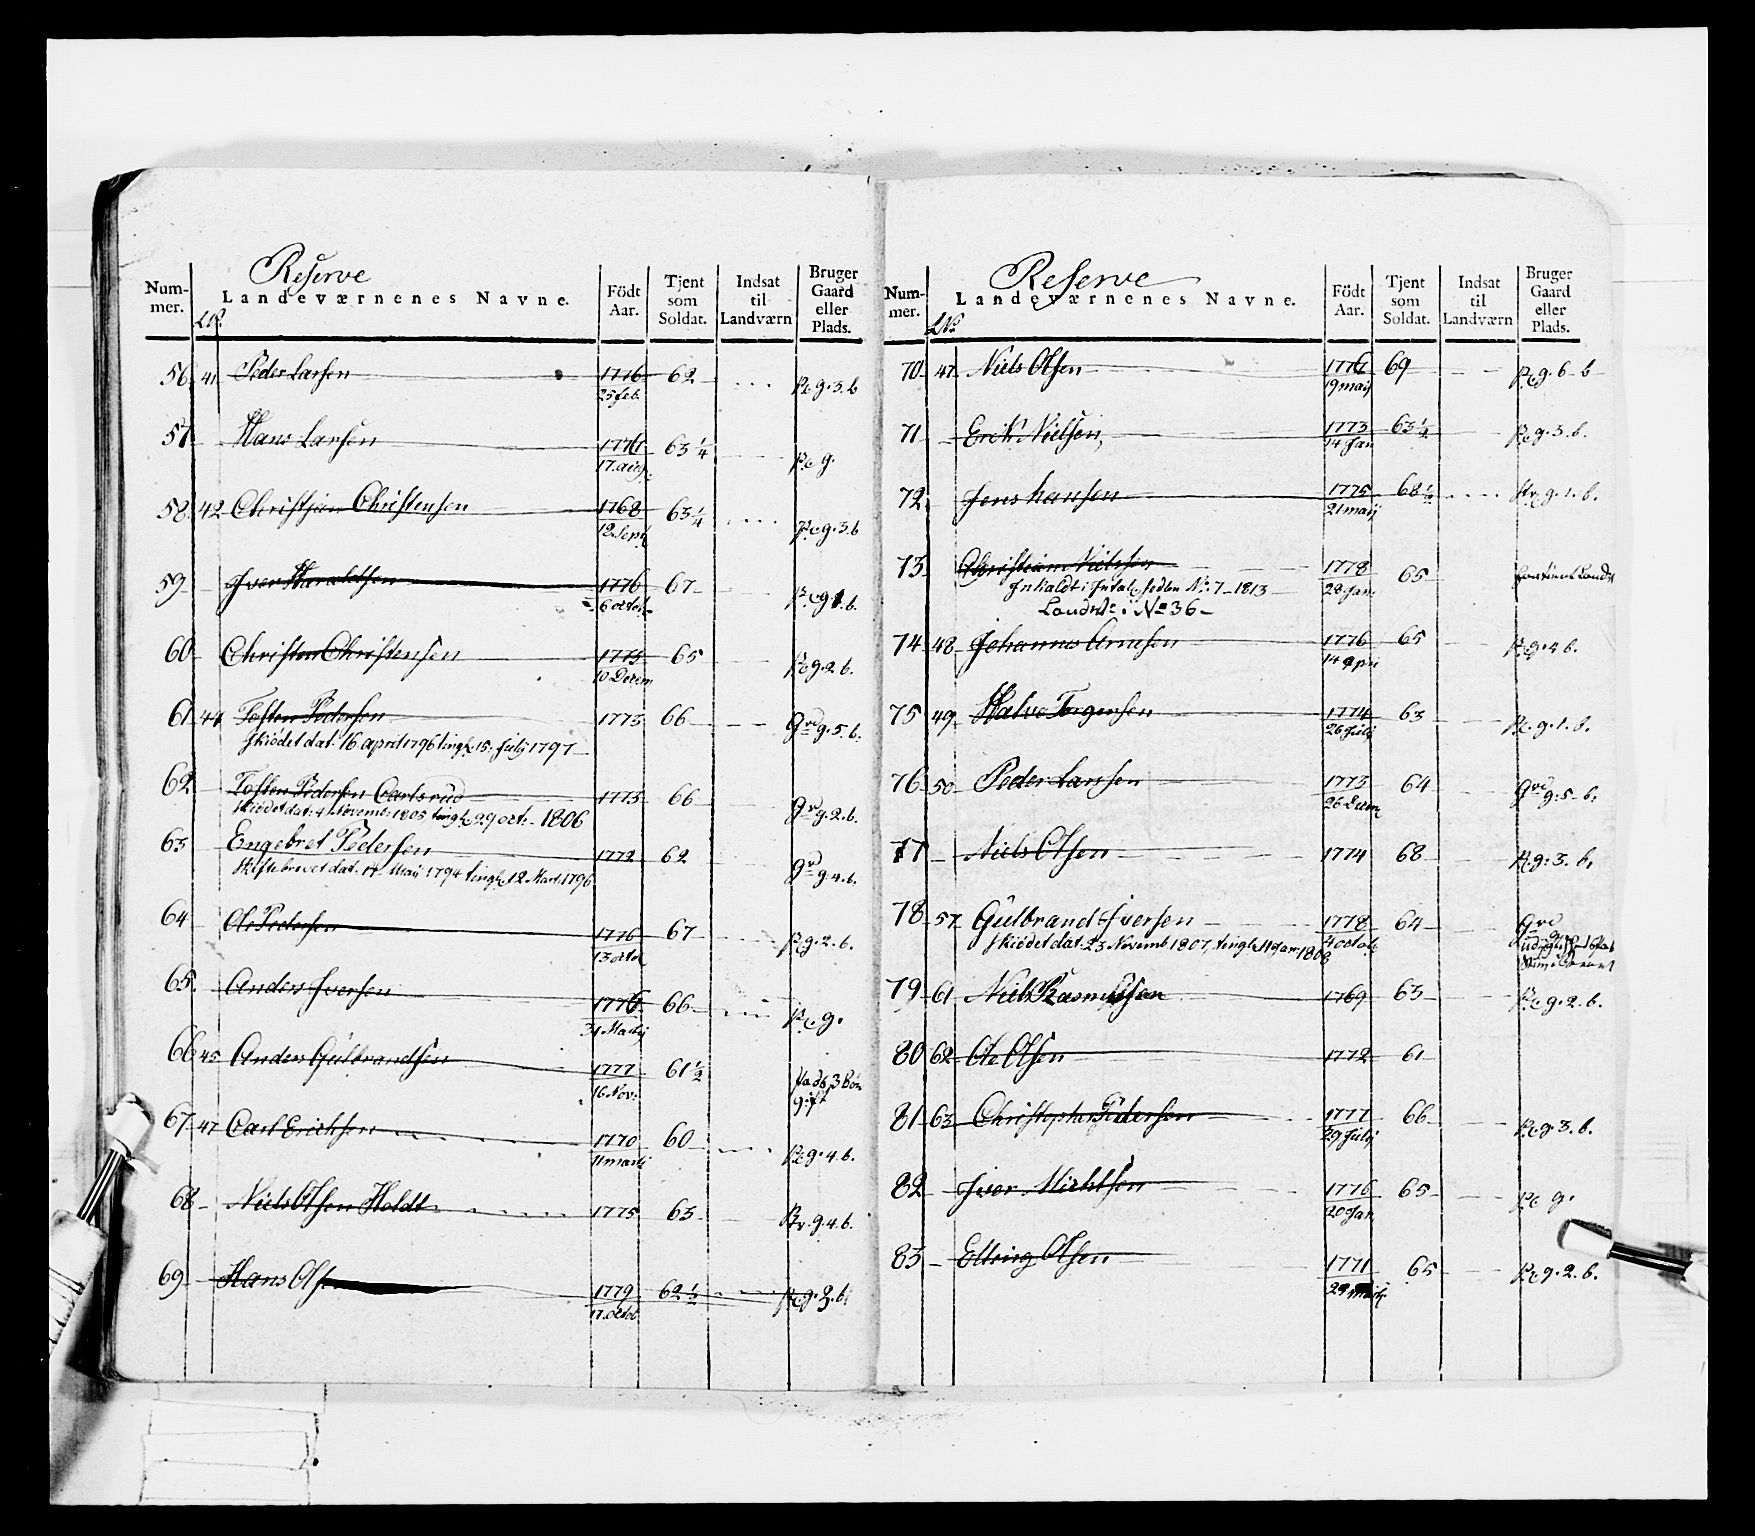 Reserve
Nummer.
L.No.
Landeværnenes Navne.
Födt Aar.
Tjent som Soldat.
Indsat til Landværn
Bruger Gaard eller Plads.
56 41 Peder Larsen 1776 62 p. g. 3. b
25 feb.
57 Hans Larsen 1776 63 1/4 p. g.
17. aug.
58 42 Christian Christensen 1768 63 1/4 p. g. 3. b
12 Sept
59 Iver Haraldsen 1776 67 p. g. 1. b.
6 octob.
60 Christen Christensen 1775 65 p. g. 2. b.
10 Decem
61 44 Tosten Pedersen 1773 66 Grd g. 5. b.
Skiödet dat. 16 april 1796 tingl. 15. July 1797
62 Tosten Pedersen Carlsrud 1773 66 Grd g. 2. b.
Skiödet dat: 4 Novemb: 1805 tingl. 29 oct: 1806
63 Engebret Pedersen 1772 62 Grd g. 4. b.
Skiftebrevet dat. 17 Maij 1794 tingl. 12 Mart. 1796
64 Ole Pedersen 1776 67 p. g. 2. b.
13 octo
65. Anders Iversen 1776 66 p. g.
31 Martij
66 45 Anders Gulbrandsen 1777 61 1/2 3 Börn
16 Nov: gift
67 47 Carl Erichsen 1770 60 p. g. 4. b.
11 martij
68 Niels Olsen Holdt 1775 63 g. 4. b.
69 Hans Olsen 1779 62 1/2 p. g. 3. b
17. octob
Reserve
Nummer.
L No
Landeværnenes Navne.
Födt Aar.
Tjent som Soldat.
Indsat til Landværn
Bruger Gaard eller Plads.
70 47 Niels Olsen 1776 69 p. g. 6 b
19 maij
71 Erik Nielsen 1773 63 1/2 p. g. 3. b.
14 Jan
72 Jens hansen 1775 68 1/2 g. 1. b.
21 maij
73 Christian Nielsen 1778 65
No. 7 - 1813 28 Jan
Landv. i No 36
74 48 Johannes Arnesen 1776 65 p. g. 4 b.
14 apri
75 49 Halvo Torgersen 1774 63 p. g. 1. b.
26 Julij
76 50 Peder Larsen 1773 64 Grd g. 5. b.
26 Decem
77 Niels Olsen 1774 68 p. g. 3. b.
78 57 Gulbrand Iversen 1778 64 Grd
Skiödet dat. 23 Novemb 1807, tingl. 11 Jan 1808 4 octob.
79 61 Niels Rasmussen 1769 63 p. g. 2. b.
80 62 Ole Olsen 1772 61
81 63 Christopher Pedersen 1777 66 p. g. 3. b.
29 Julij
82 Iver Michelsen 1776 65 p. g.
20 Jan
83 Elling Olsen 1771 65 p. g. 2. b.